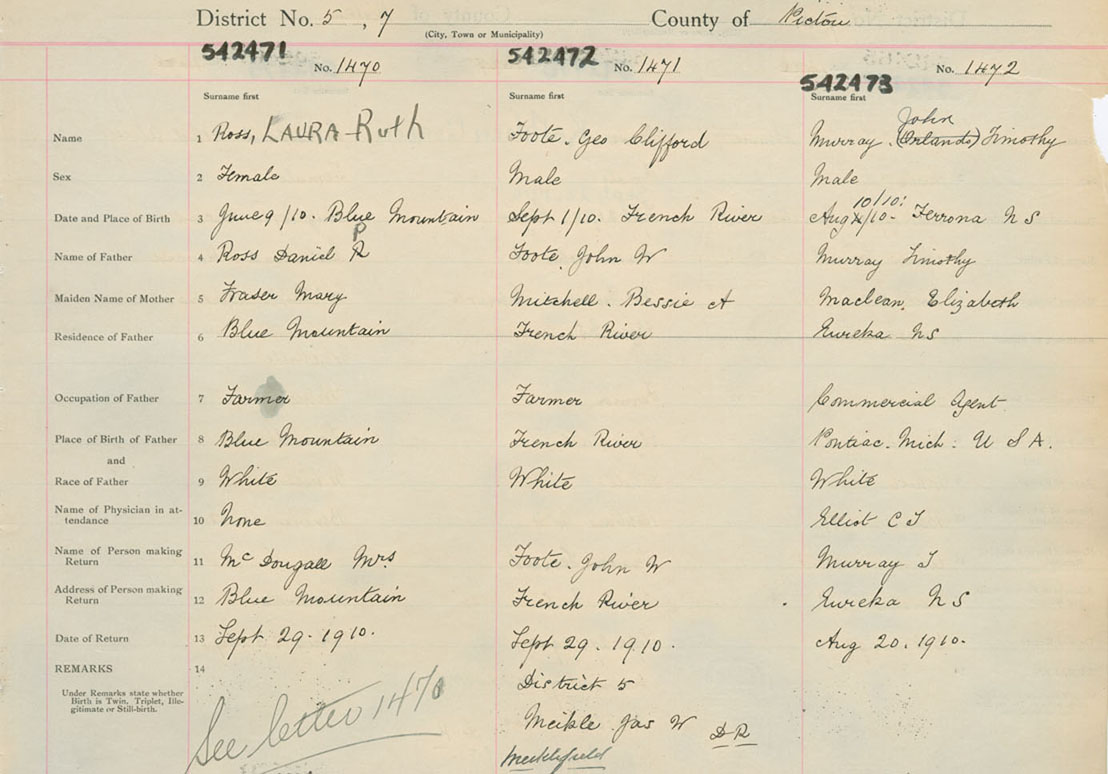 District No. 5, 7 County of Pictou
(City, Town or Municipality)
542471 542472 542473
No. 1470 No. 1471 No. 1472
Surname first Surname first Surname first
John
Name 1 Ross, LAURA Ruth Foote. Geo Clifford Murray. (Orlando) Timothy
Sex 2 Female Male Male
10/10:
Date and Place of Birth 3 June 9/10. Blue Mountain Sept 1/10. French River Aug /10- Ferrona N S
P
Name of Father 4 Ross Daniel R Foote. John W Murray Timothy
Maiden Name of Mother 5 Fraser Mary Mitchell. Bessie A Maclean, Elizabeth
Residence of Father 6 Blue Mountain French River Eureka NS
Occupation of Father 7 Farmer Farmer Commercial Agent
Place of Birth of Father 8 Blue Mountain French River Pontiac. Mich. U S A.
and
Race of Father 9 White White White
Name of Physician in at-
tendance 10 None Elliot C T
Name of Person making
Return 11 McDougall Mrs Foote. John W Murray T
Address of Person making
Return 12 Blue Mountain French River Eureka N S
Date of Return 13 Sept 29. 1910. Sept 29. 1910. Aug 20. 1910.
REMARKS 14
District 5
Under Remarks state whether
Birth is Twin, Triplet, Ille-
gitimate or Still-birth.
See letter 1470
Meikle Jas W DR